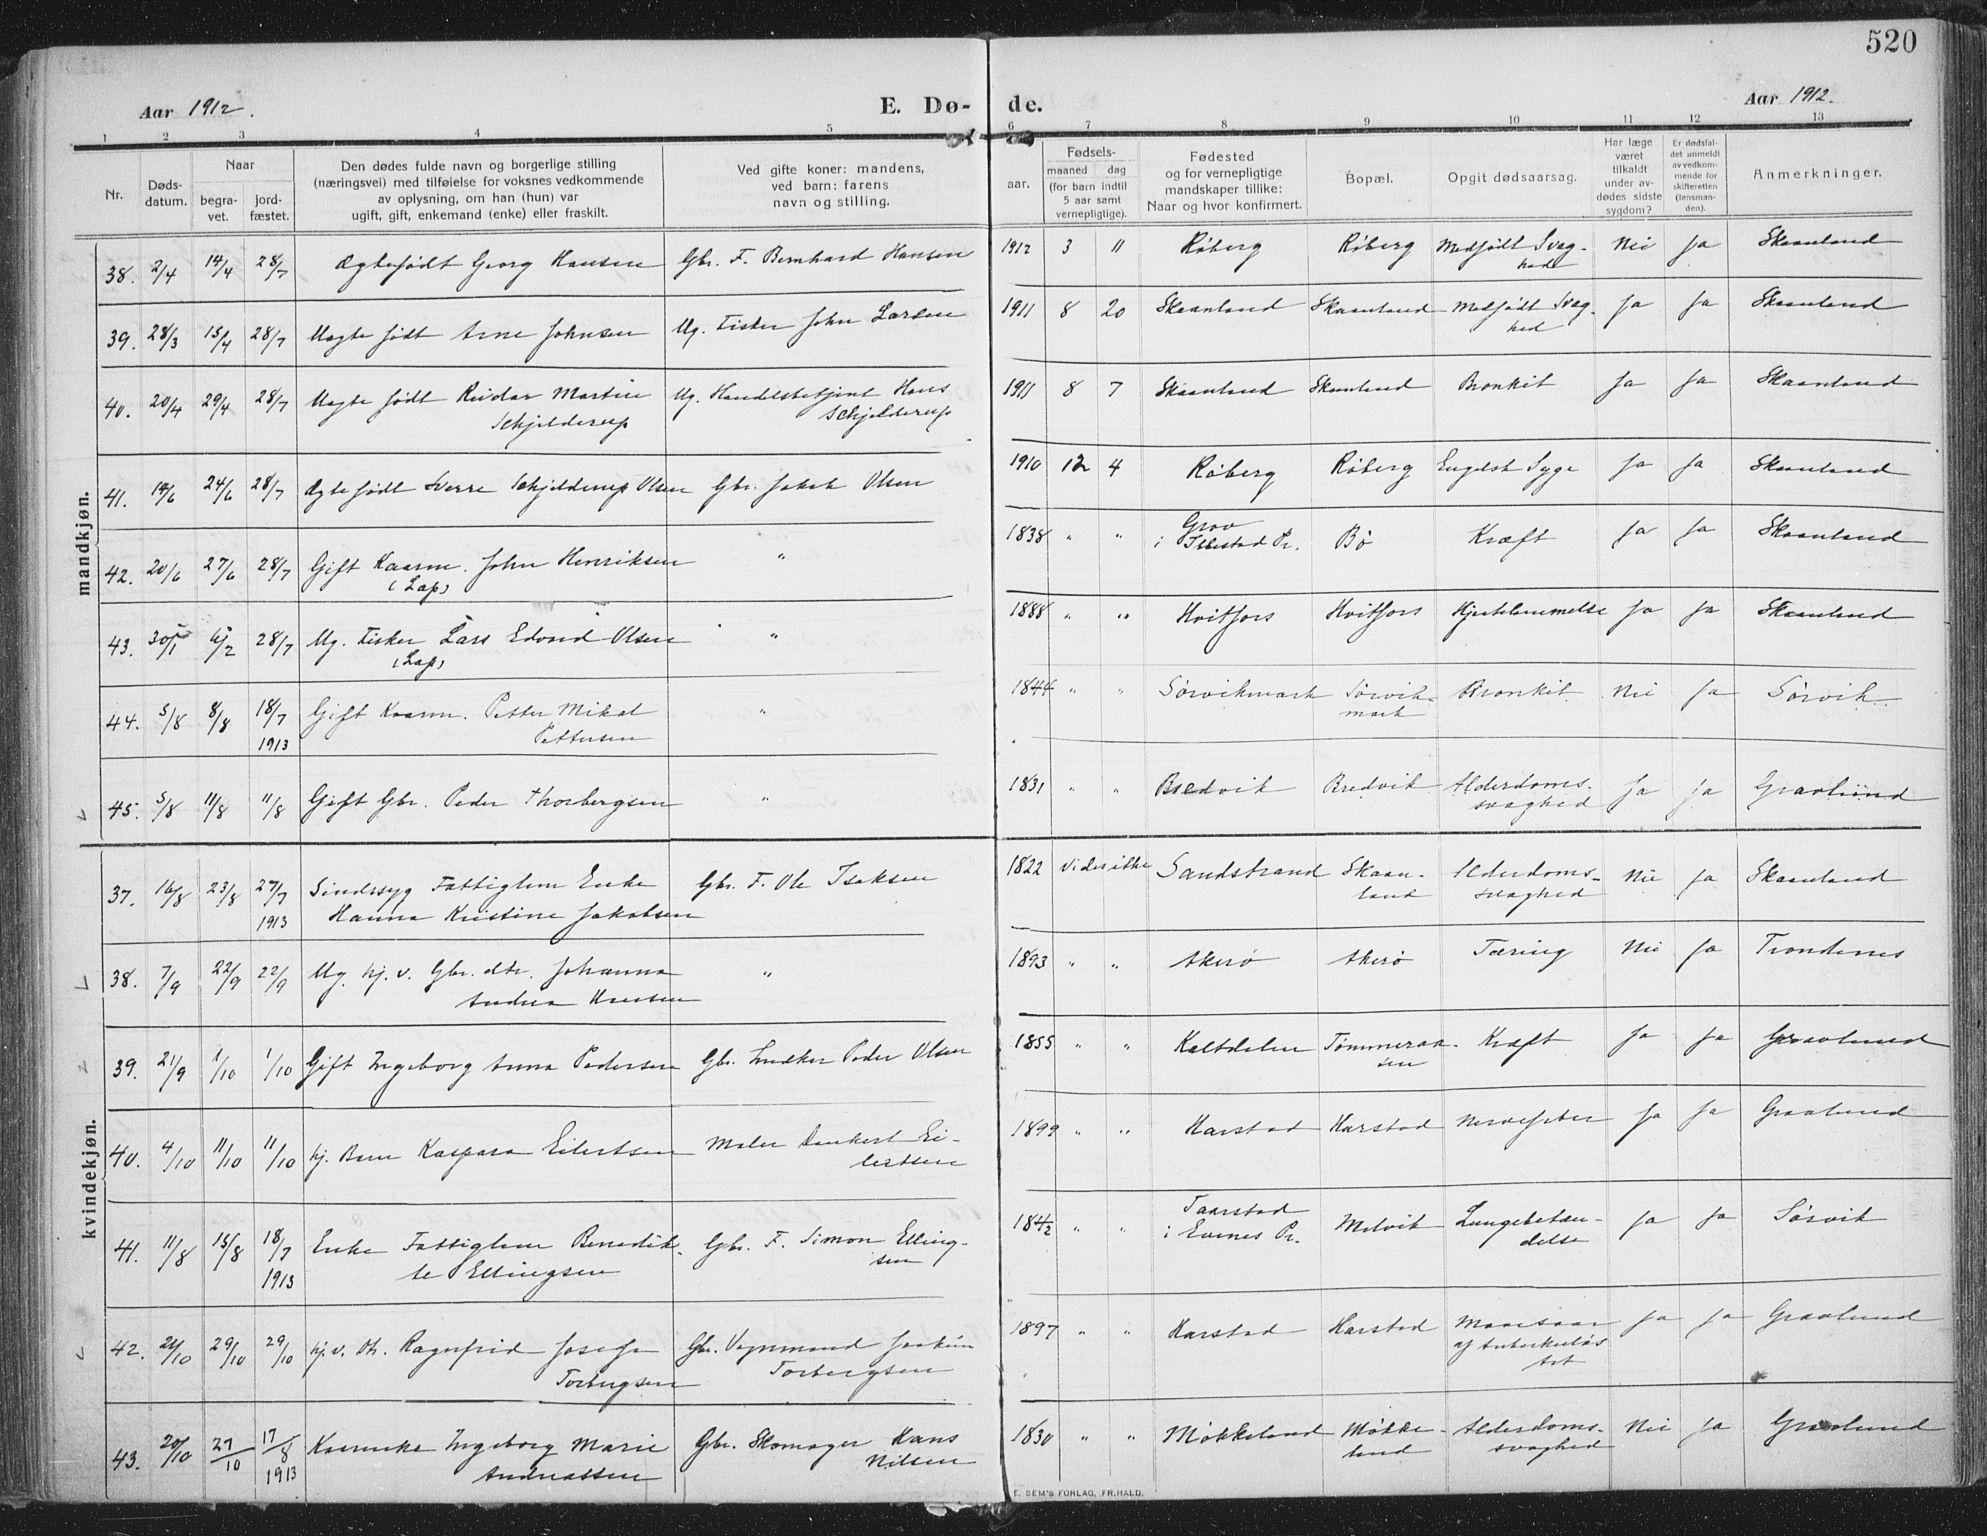 520
Aar 1912.
E. Dø-
de.
Aar 1912.
1 2 3 4 5 6 7 8 9 10 11 12 13
Nr.
Døds-
datum.
Naar
begra-
vet.
jord-
fæstet.
Den dødes fulde navn og borgerlige stilling
(næringsvei) med tilføielse for voksnes vedkommende
av oplysning, om han (hun) var
ugift, gift, enkemand (enke) eller fraskilt.
Ved gifte koner: mandens,
ved barn: farens
navn og stilling.
Fødsels-
aar.
maaned dag
(for barn indtil
5 aar samt
vernepligtige).
Fødested
og for vernepligtige
mandskaper tillike:
Naar og hvor konfirmert.
Bopæl.
Opgit dødsaarsag.
Har læge
været
tilkaldt
under av-
dødes sidste
sygdom?
Er dødsfal-
det anmeldt
av vedkom-
mende for
skifteretten
(lensman-
den).
Anmerkninger.
mandkjøn.
38. 2/4 14/4 28/7 Ægtefødt Georg Hansen Gbr. F. Bernhard Hansen 1912 3 11 Røberg Røberg Medfødt Svag- Nei Ja Skaanland
hed
39. 28/3 15/4 28/7 Uægte født Arne Johnsen Ug. Fisker John Larsen 1911 8 20 Skaanland Skaanland Medfødt Svag- Ja Ja Skaanland
hed
40. 20/4 29/4 28/7 Uægte født Reidar Martin Ug. Handelsbetjent Hans 1911 8 7 Skaanland Skaanland Bronkit Ja Ja Skaanland
Schjelderup Schjelderup
41. 14/6 24/6 28/7 Ægtefødt Sverre Schjelderup Olsen Gbr. Jakob Olsen 1910 12 4 Røberg Røberg Engelsk Syge Ja Ja Skaanland
42. 20/6 27/6 28/7 Gift Kaarm. John Henriksen " 1838 " " Grov
i Ibbestad Pr. Bø Kræft Ja Ja Skaanland
(Lap)
43. 30/1 6/2 28/7 Ug. Fisker Lars Edvard Olsen " 1888 " " Hvitfors Hvitfors Hjertelammelse Ja Ja Skaanland
(Lap)
44. 5/8 8/8 18/7 Gift Kaarm. Petter Mikal " 1844 " " Sørvikmark Sørvik- Bronkit Nei Ja Sørvik
1913 Pettersen mark
45. 5/8 11/8 11/8 Gift Gbr. Peder Thorbergsen " 1831 " " Bredvik Bredvik Alderdoms- Ja Ja Gravlund
svaghed
kvindekjøn.
37. 16/8 23/8 27/7 Sindssyg Fattiglem Enke Gbr. F. Ole Isaksen 1822 Vides ikke Sandstrand Skaan- Alderdoms- Nei Ja Skaanland
1913 Hanna Kristine Jakobsen land svaghed
38. 7/9 22/9 22/9 Ug. hj. v. Gbr. dtr. Johanna " 1893 " " Akerø Akerø Tæring Nei Ja Trondenes
Andrea Hansen
39. 21/9 1/10 1/10 Gift Ingeborg Anna Pedersen Gbr. Snedker Peder Olsen 1855 " " Kaltdalen Tømmeraa- Kræft Ja Ja Gravlund
sen
40. 4/10 11/10 11/10 hj. Barn Kaspara Eilertsen Maler Dankert Ei- 1899 " " Harstad Harstad Nervefeber Ja Ja Gravlund
lertsen
41. 11/8 15/8 18/7 Enke Fattiglem Benedik- Gbr. F. Simon Elling- 1842 " " Taarstad
i Evenes Pr. Melvik Lungebetæn- Ja Ja Sørvik
1913 te Ellingsen sen delse
42. 21/10 29/10 29/10 hj. v. Dtr. Ragnfrid Josefa Gbr. Vognmand Joakim 1897 " " Harstad Harstad Ja Ja Gravlund
Torbergsen Torbergsen af tuberkuløs
Art
43. 20/10 27/10 17/8 Kaarenke Ingeborg Marie Gbr. Skomager Hans 1830 " " Møkkeland Møkke- Alderdoms- Nei Ja Gravlund
1913 Andreassen Nilsen land svaghed
E. SEM'S FORLAG, FR.HALD.